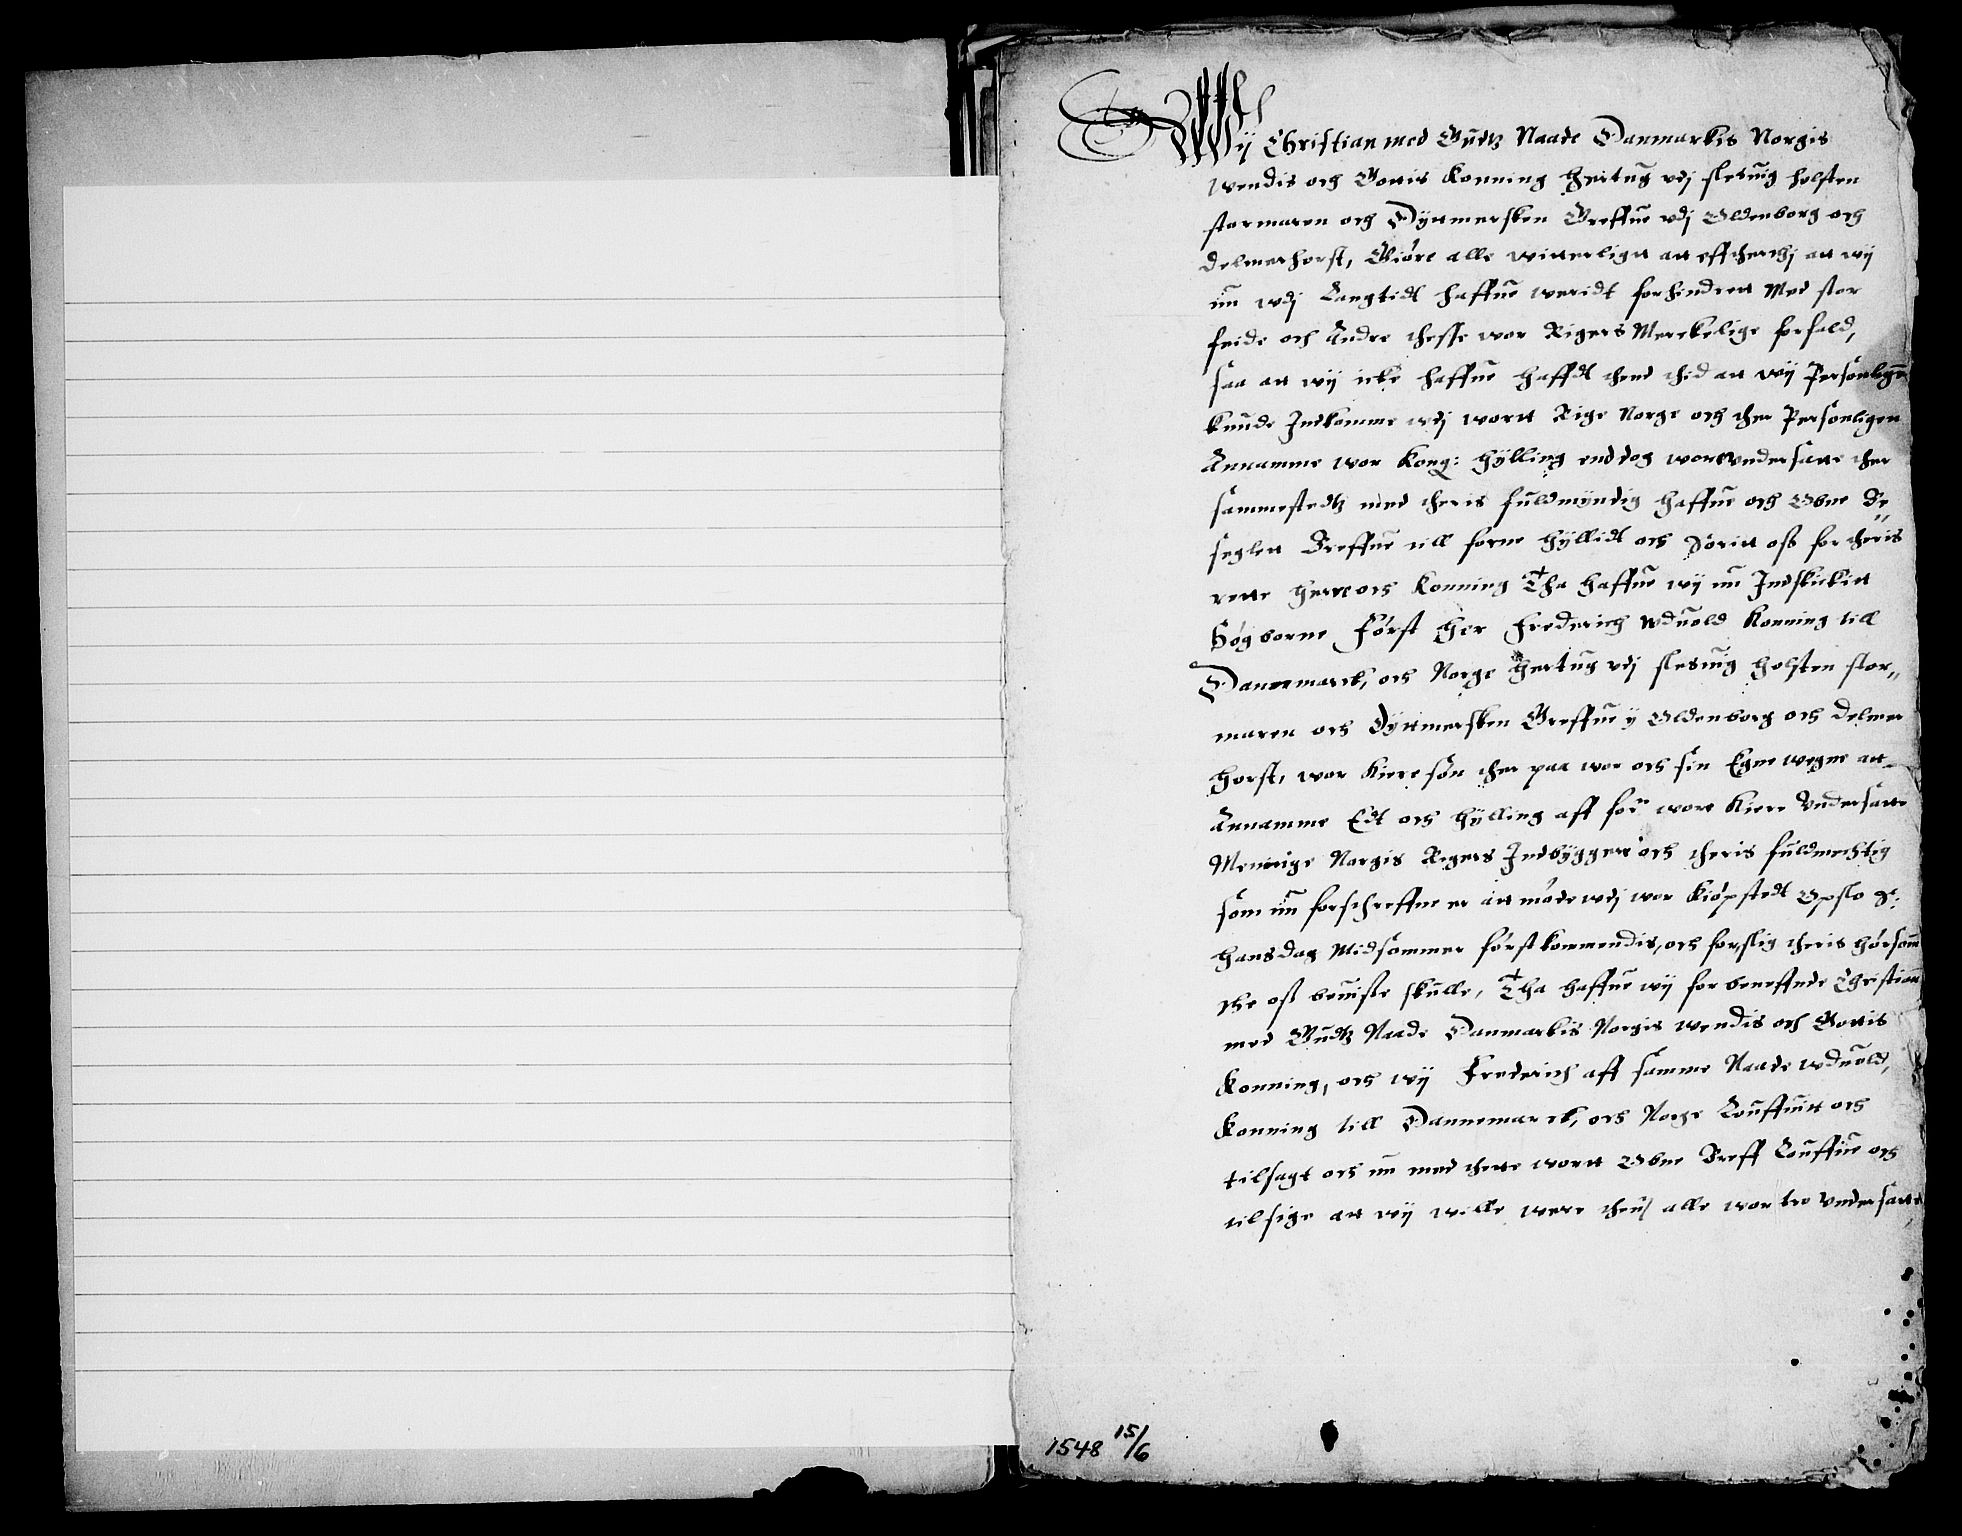 Wij Christian med Gudtz Naade Danmarkis Norgis
wendis och Gottis Konning Hertug vdj slesuig holsten
stormaren och Dyttmersken Greffue vdj Oldenborg och
delmerhorst, Giöre alle witterligtt att effther thj att wij
nu wdj Langtidt haffue weridt forhindrett Med stor
feide och Andre thesse wor Rigers Merckelige forfald,
saa att wij icke haffue hafft thend thid att wij Personlige
kunde Indkomme wdj wortt Rige Norge och ther Personligen
Annamme wor Kong: Hylling enddog wore undersatte ther
sammestedtz med theris fuldmyndig haffue och Obne Be„
seglett Breffue till forne hyllidt och Sorit oss for theris
rette Herre och Konning Tha haffue wij nu Indskickitt
Högborne Först Her Frederich wduold Konning till
Dannemarck, och Norge Hertug vdj slesuig holsten stor„
maren och Dyttmersken Greffue y Oldenborg och delmer
horst, wor kiere sön ther paa wor och sin Egne wegne att
Annamme Edt och Hylling aff for: wore kiere Undersatte
Menige Norgis Rigers Indbyggere och theris fuldmechtig
som nu forschreffne er att möde wdj wor kiöpstedt Opslo S:
hansdag Midsommer förstkommendis, och forslig theris hörsom
the oss beuiste skulle, Tha haffue wij for beneffnde Christian
med Gudtz Naade Danmarkis Norgis wendis och Gottis
Konning, och wij Frederich aff samme Naade wduold,
Konning till Dannemarck, och Norge Louffuitt och
tilsagt och nu med thette wortt Obne Breff Louffue och
tilsige att wij wille were theris alle wor tro Undersatte
1548 15/6